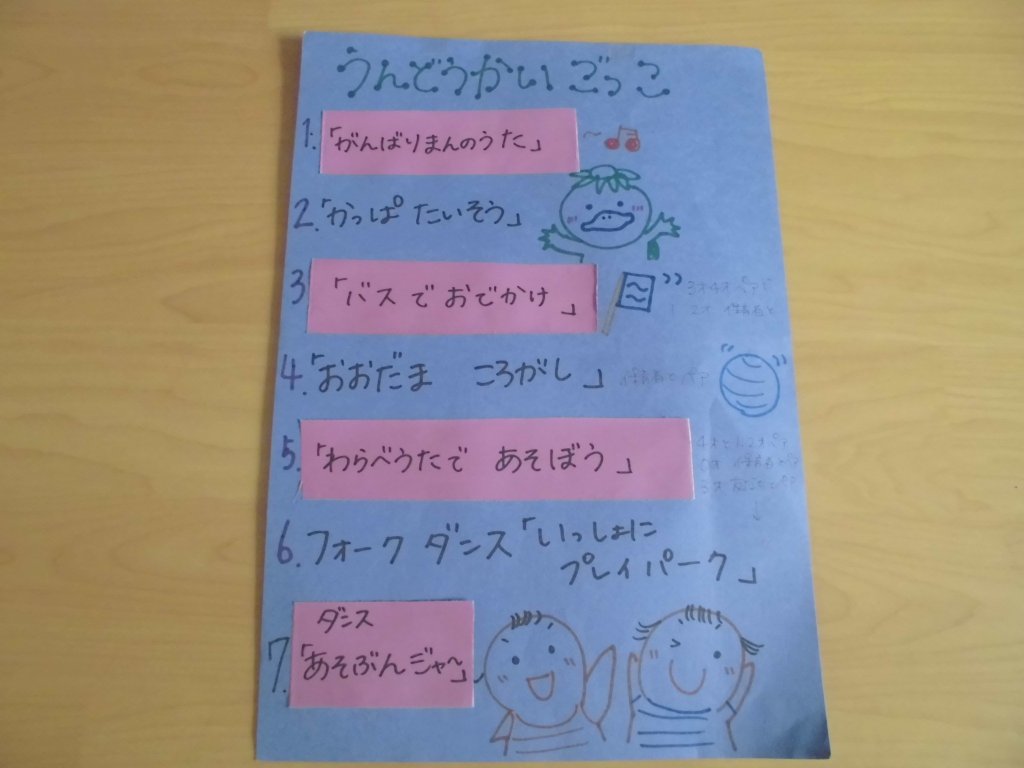 うんどうかいごっこ
1.「がんばりまんのうた」～
2.「かっぱ たいそう」
3 「バスで おでかけ」
3才4才ペアで
2才 保育者と
4.「おおだま ころがし」
保育者とペア
5.「わらべうたで あそぼう」
6.フォーク ダンス「いっしょに
プレイパーク」
7.ダンス
「あそぶんジャ～」